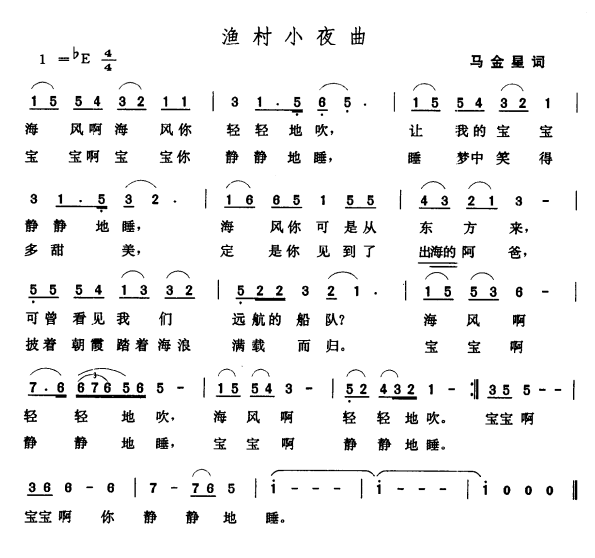 渔村小夜曲
1 =♭E 4/4
马金星 词
1 5 5 4 3 2 1 1 | 3 1 . 5 6 5 . | 1 5 5 4 3 2 1 |
海 风啊 海 风你 轻轻地吹, 让 我的 宝 宝
宝 宝啊 宝 宝你 静静地睡, 睡 梦中 笑 得
3 1 . 5 3 2 . | 1 6 6 5 1 5 5 | 4 3 2 1 3 - |
静静地睡, 海 风你可是从 东 方来,
多甜 美, 定 是你见到了 出海的阿 爸,
5 5 5 4 1 3 3 2 | 5 2 2 3 2 1 . | 1 5 5 3 6 - |
可曾 看见我 们 远航的船队? 海 风 啊
披着 朝霞踏着海浪 满载 而归。 宝 宝 啊
7 . 6 6 7 6 5 6 5 - | 1 5 5 4 3 - | 5 2 4 3 2 1 - :‖ 3 5 5 - |
轻 轻 地吹, 海 风 啊 轻 轻地吹。 宝宝 啊
静 静 地睡, 宝 宝 啊 静 静地睡。
3 6 6 - 6 | 7 - 7 6 5 | i - - - | i - - - | i 0 0 0 ‖
宝宝 啊 你 静 静 地 睡。